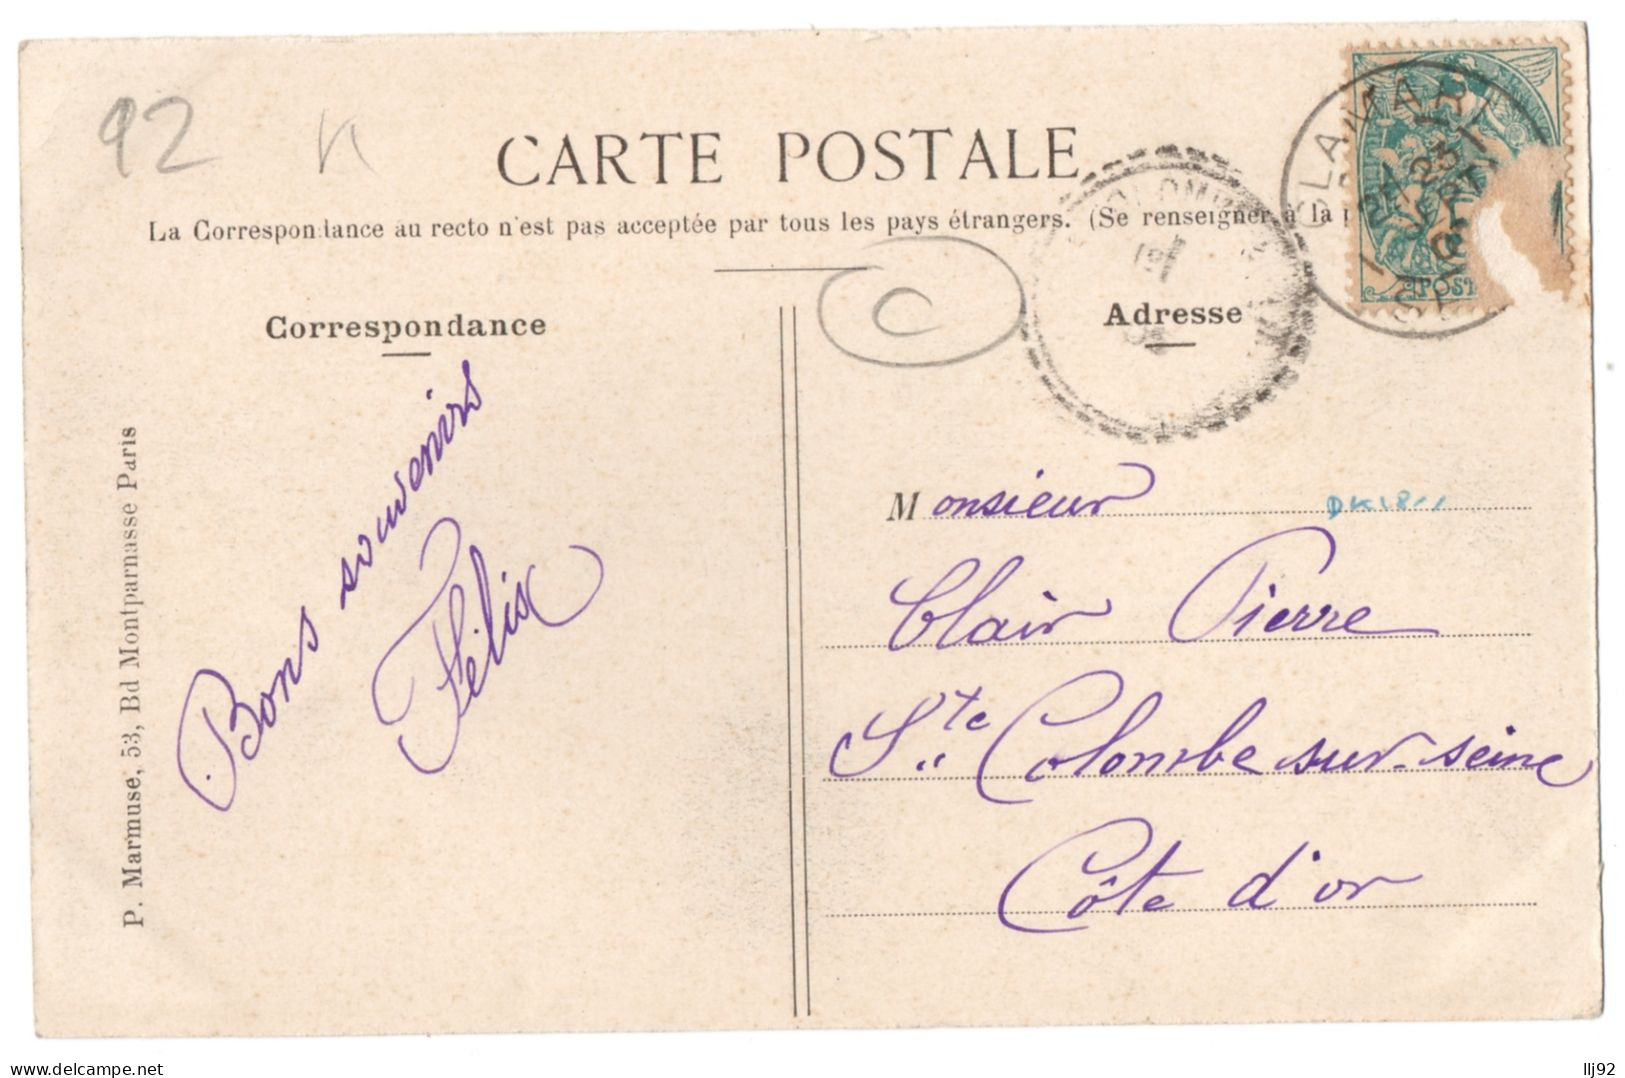 92 K
CARTE POSTALE
La Correspondance au recto n'est pas acceptée par tous les pays étrangers. (Se renseigner à la
CLAMART
23
POST
Correspondance
Adresse
Bons souvenirs
Félix
Monsieur
Clair Pierre
Ste Colombe sur-seine
Côte d'or
P. Marmuse, 53, Bd Montparnasse Paris
www.delcampe.net
llj92